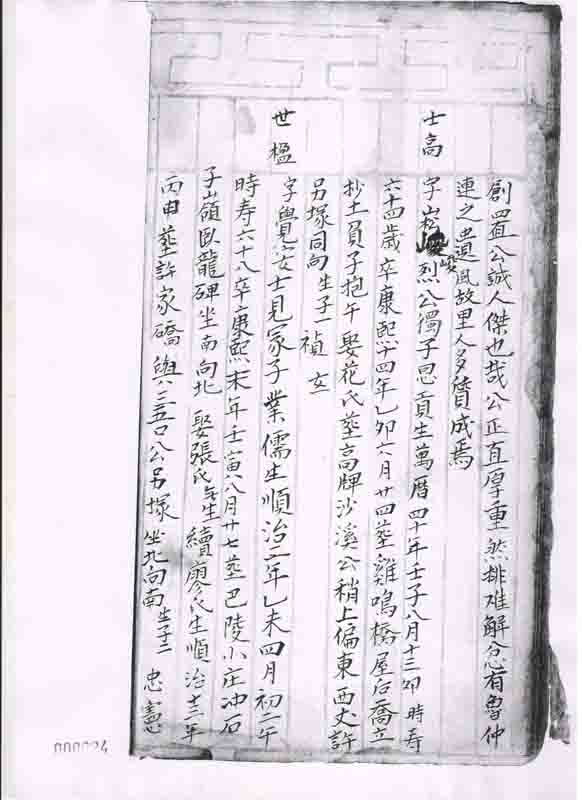 創置公誠人傑也哉公正直厚重然排难解忿有魯仲
連之遺風故里人多賛成焉
士高 字崧峻烈公獨子恩貢生萬暦四十年壬子八月十三卯時寿
六十四歲卒康熙十四年乙卯六月廿四塟雞鳴橋屋后喬立
抄土員子抱午 娶花氏塟高牌沙溪公稍上偏東西丈許
另塚同向 生子一 禎 女一
世楹 字覺安士見冢子業儒生順治二年乙未四月初二午
時寿六十八卒康熙末年壬寅八月廿七塟巴陵小庄冲石
子山嶺臥龍碑坐南向北 娶張氏無生續廖氏生順治十三年
丙申塟許家礄與三吾公另塚坐北向南 生子二 忠憲
000024